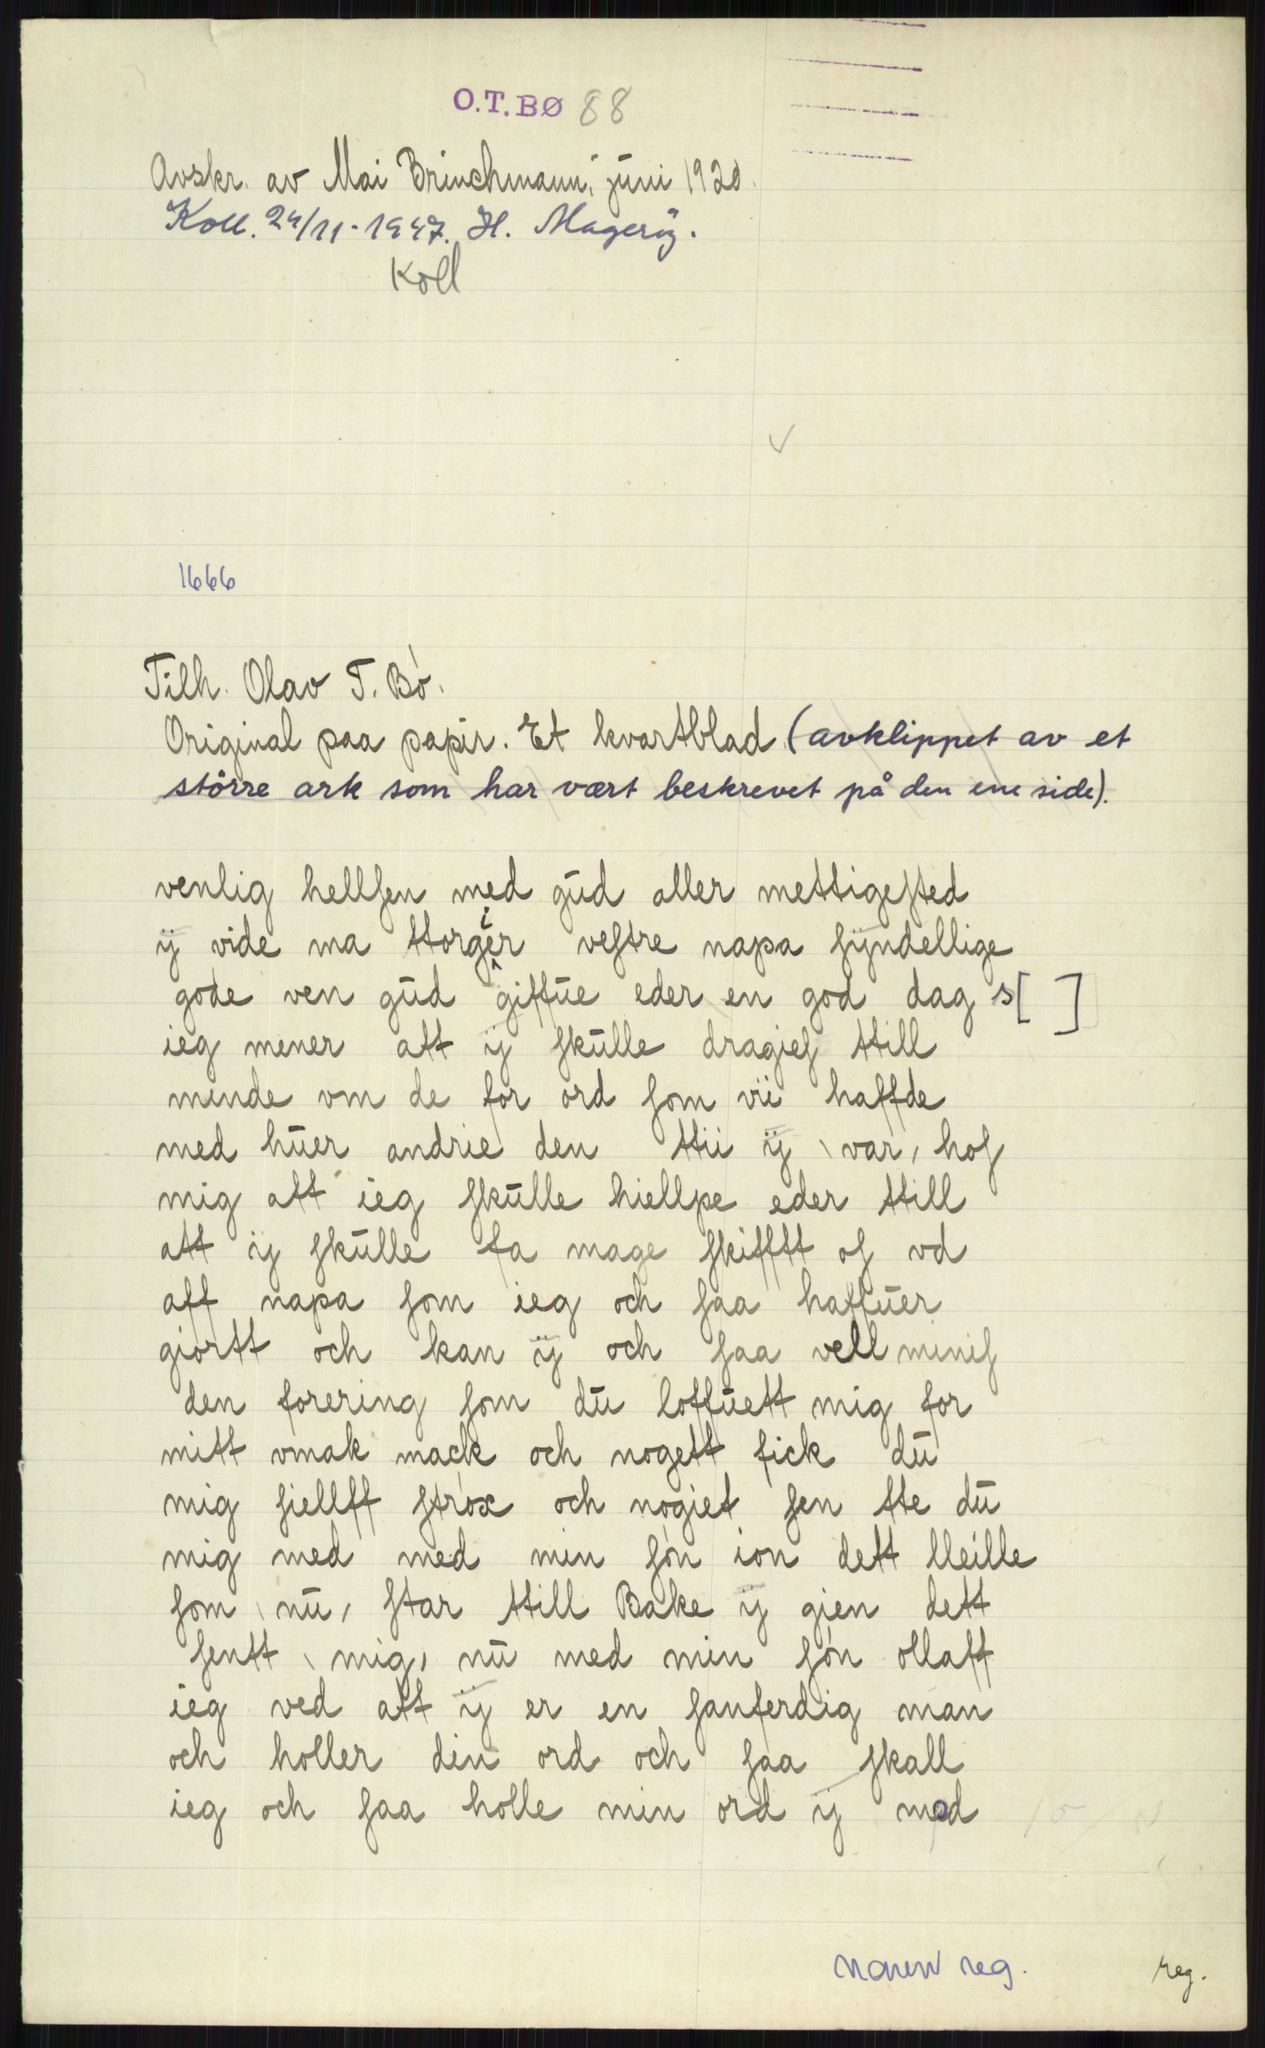 O.T.BØ 88
Avskr. av Mai Brinchmann, juni 1920.
Koll. 24/11-1947. H. Magerøy.
Koll
1666
Tilh. Olav T. Bø.
Original paa papir. Et kvartblad (avklippet av et
större ark som har vært beskrevet på den ene side).
venlig hellſen med gud aller mettigeſted
ÿ vide ma ttorgeir veſtre napa ſÿndellige
gode ven gud giffue eder en god dag s[ ]
ieg mener att ÿ ſkulle dragieſ ttill
minde om de for ord ſom vii haffde
med huer andrie den ttii ÿ \ var / hoſ
mig att ieg ſkulle hiellpe eder ttill
att ÿ ſkulle fa mage ſkifftt oſ vd
aff napa ſom ieg och ſaa haffuer
giortt och kan ÿ och ſaa vell miniſ
den forering ſom du loffuett mig for
mitt vmak mack och nogett fick du
mig ſiellff ſtrox och nogiet ſen tte du
mig med med min ſøn ion dett lleille
ſom \ nu / ſtar ttill Bake ÿ gien dett
ſentt \ mig / nu med min ſøn ollaff
ieg ved att ÿ er en ſanferdig man
och holler din ord och ſaa ſkall
ieg och ſaa holle min ord ÿ mod
navn reg.
reg.